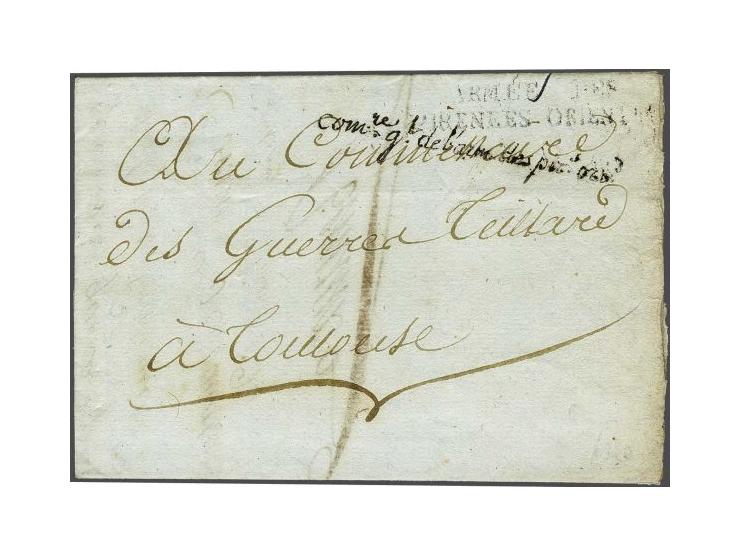 ARMÉE DES
PIRENEES-ORIENT
Com.re
g.l de l'armée des pir.
Au Commissaire
des Guerres Teillard
à Toulouse